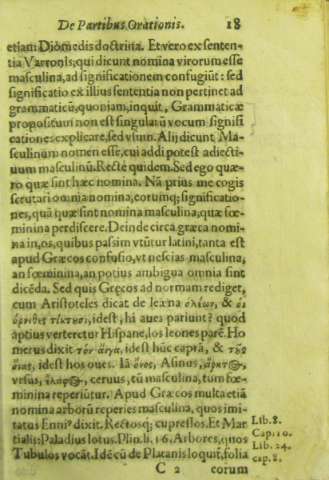 De Partibus Orationis. 18
etiam Diomedis doctrina. Et vero ex senten-
tia Varronis; qui dicunt nomina virorum esse
masculina, ad significationem confugiūt: sed
significatio ex illius sententia non pertinet ad
grammaticū, quoniam, inquit, Grammaticæ
propositum non est singularū vocum signifi
cationes explicare, sed vsum. Alij dicunt Ma-
sculinum nomen esse, cui addi potest adiecti-
uum masculinū. Recte quidem. Sed ego quæ-
ro quæ sint hæc nomina. Nā prius me cogis
scrutari omnia nomina, eorumq; significatio-
nes, quā quæ sint nomina masculina, quæ fœ-
minina perdiscere. Deinde circa græca nomi-
na in, os, quibus passim vtūtur latini, tanta est
apud Græcos confusio, vt nescias masculina,
an fœminina, an potius ambigua omnia sint
dicēda. Sed quis Grecos ad normam rediget,
cum Aristoteles dicat de leæna & οἱ
ὄρνιθες τίκτουσι, idest, hi aues pariunt? quod
aptius verteretur Hispane, los leones parē. Ho
merus dixit τὸν αἶγα, idest hūc caprā, & τοὺς
idest hos oues. Iā ὄνος, Asinus, ἄρκτος,
vrsus, ἔλαφος, ceruus, tū masculina, tum fœ-
minina reperiūtur. Apud Græcos multa etiā
nomina arborū reperies masculina, quos imi-
tatus Enni9 dixit. Rectosq; cupressos. Et Mar
tialis: Paladius lotus. Plin. li. 16. Arbores, quos
Tubulos vocāt. Idē cū de Platanis loquit, folia
C 2 eorum
Lib. 8.
Cap. 10.
Lib. 24.
cap. 8.